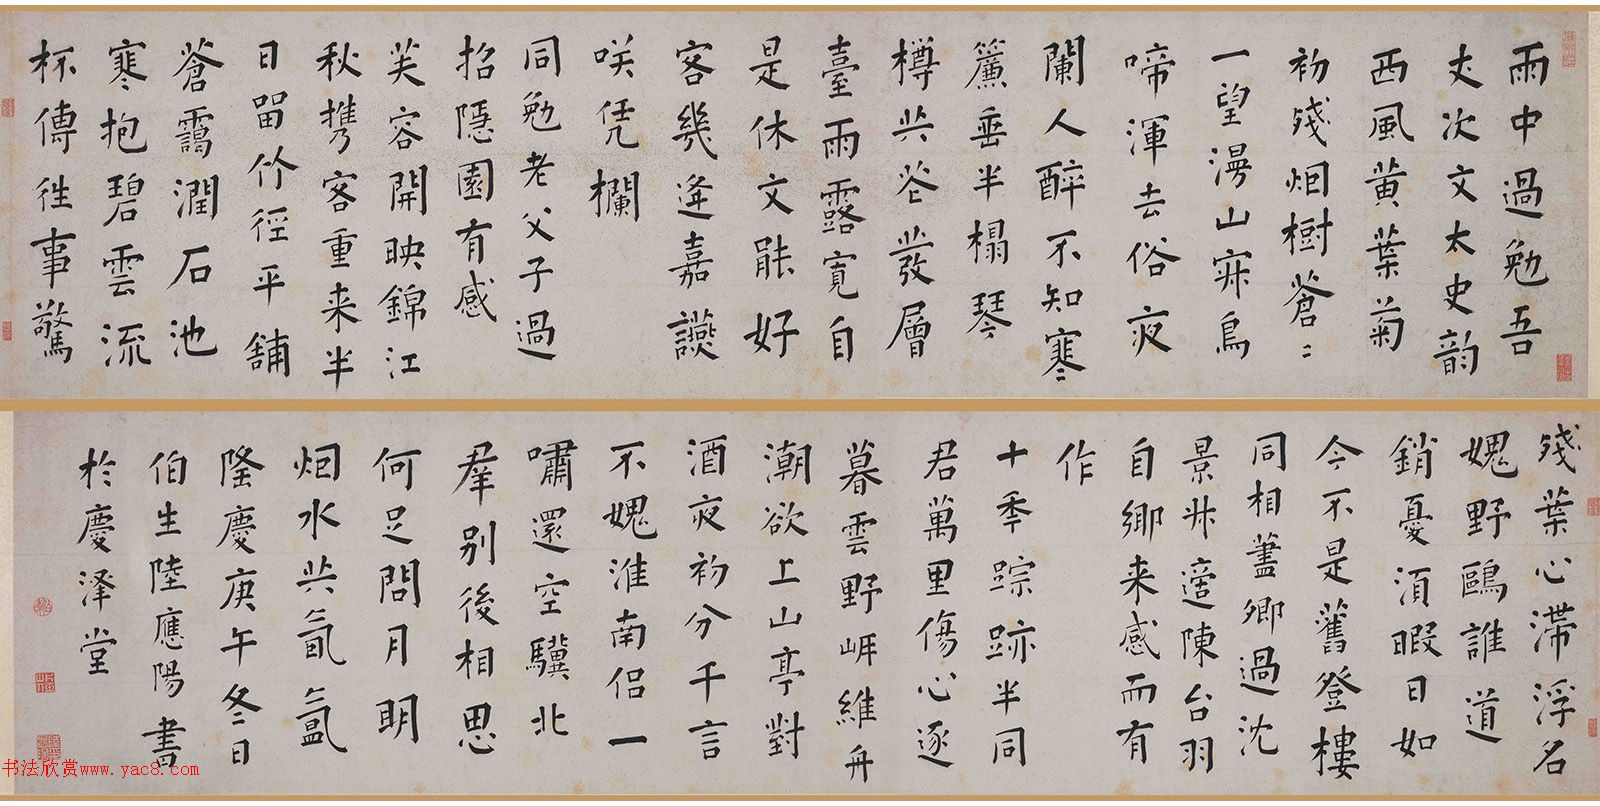 雨中過勉吾
丈次文太史韵
西風黄葉菊
初殘烟樹蒼〻
一望漫山寂鳥
啼渾去俗夜
闌人醉不知寒
簾垂半榻琴
樽共花發層
臺雨露寛自
是休文能好
客幾逢嘉讌
咲凭欄
同勉老父子過
招隱園有感
芙容開映錦江
秋携客重来半
日留竹徑平鋪
蒼靄潤石池
寒抱碧雲流
杯傳往事驚
殘葉心滯浮名
媿野鷗誰道
銷憂湏暇日如
今不是舊登樓
同相藎卿過沈
景州適陳台羽
自鄉来感而有
作
十季踪跡半同
君萬里傷心逐
暮雲野岸維舟
潮欲上山亭對
酒夜初分千言
不媿淮南侣一
嘯還空驥北
羣別後相思
何足問月明
烟水共氤氲
隆慶庚午冬日
伯生陸應陽書
於慶澤堂
书法欣赏www.yac8.com